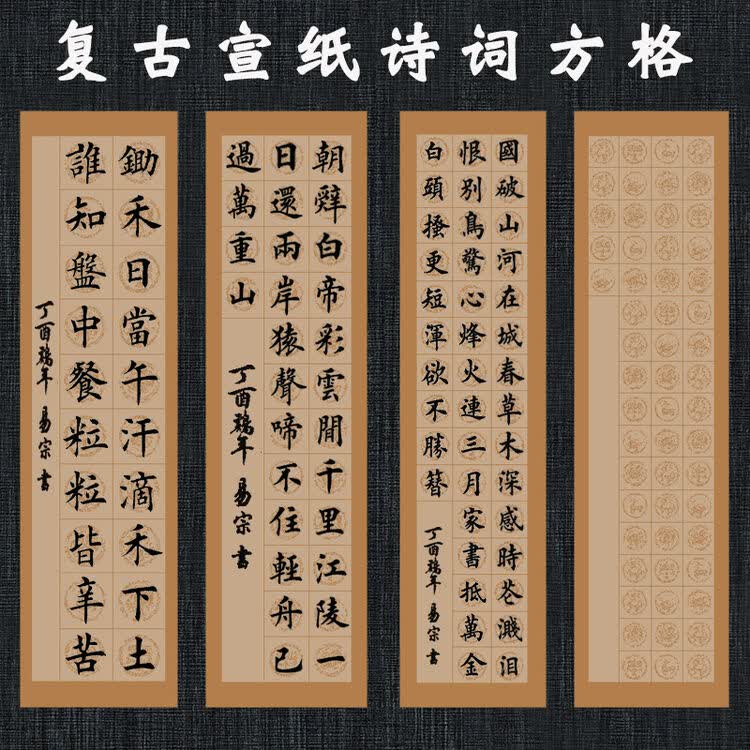 复古宣纸诗词方格
鋤禾日當午汗滴禾下土
誰知盤中餐粒粒皆辛苦
丁酉 年 易宗書
朝辤白帝彩雲間千里江陵一
日還兩岸猿聲啼不住輕舟已
過萬重山
丁酉 年 易宗書
國破山河在城春草木深感時花濺泪
恨别鳥驚心烽火連三月家書抵萬金
白頭搔更短渾欲不勝簪
丁酉 年 易宗書